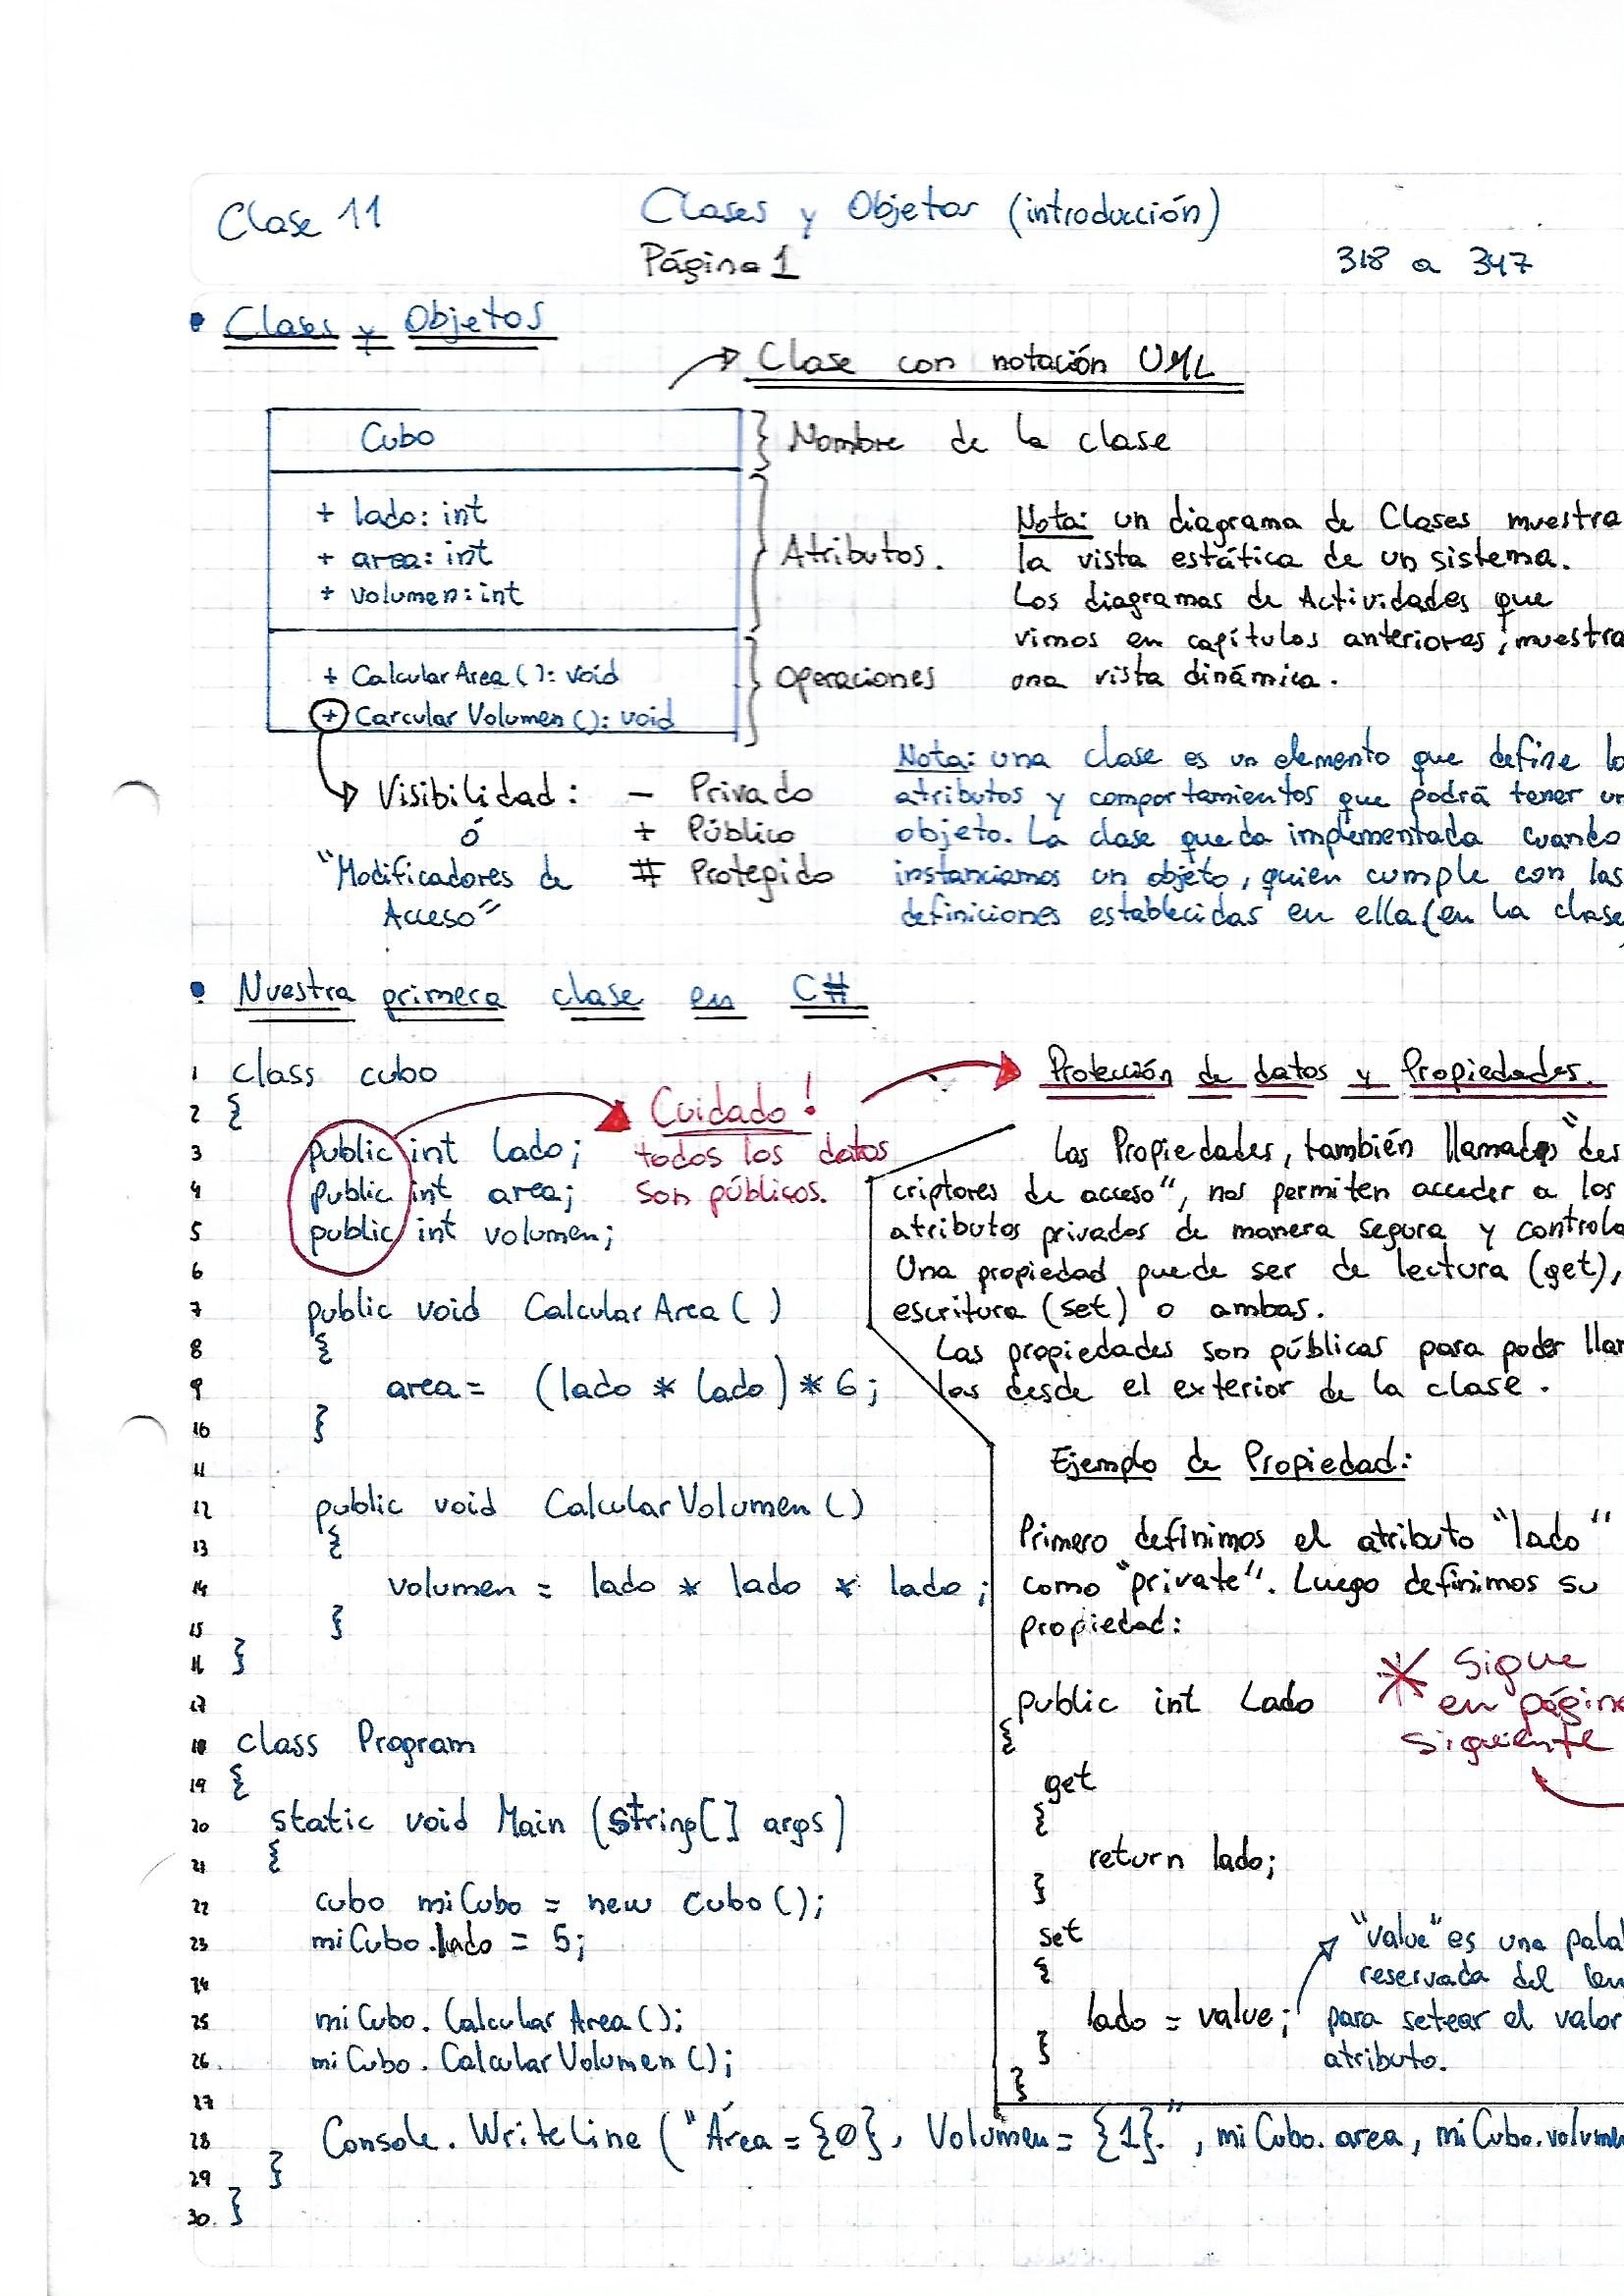 Clase 11
Clases y Objetos (introducción)
Página 1
318 a 347
• Clases y Objetos
Clase con notación UML
Cubo
Nombre de la clase
+ lado: int
+ area: int
+ volumen: int
Atributos.
+ CalcularArea(): void
+ CarcularVolumen(): void
Operaciones
Nota: un diagrama de Clases muestra
la vista estática de un sistema.
Los diagramas de Actividades que
vimos en capítulos anteriores, muestra
una vista dinámica.
Visibilidad:
ó
"Modificadores de
Acceso"
- Privado
+ Público
# Protegido
Nota: una clase es un elemento que define lo
atributos y comportamientos que podrá tener un
objeto. La clase queda implementada cuando
instanciamos un objeto, quien cumple con las
definiciones establecidas en ella (en la clase
• Nuestra primera clase en C#
1 class cubo
2 {
3 public int lado;
4 public int area;
5 public int volumen;
6
7 public void CalcularArea()
8 {
9 area = (lado * lado) * 6;
10 }
11
12 public void CalcularVolumen()
13 {
14 volumen = lado * lado * lado;
15 }
16 }
17
18 class Program
19 {
20 static void Main (string[] args)
21 {
22 cubo miCubo = new cubo();
23 miCubo.lado = 5;
24
25 miCubo.CalcularArea();
26. miCubo.CalcularVolumen();
27
28 Console.WriteLine ("Área = {0}, Volúmen = {1}.", miCubo.area, miCubo.volumen
29 }
30. }
Cuidado!
todos los datos
son públicos.
Protección de datos y Propiedades.
Las Propiedades, también llamadas "des
criptores de acceso", nos permiten acceder a los
atributos privados de manera segura y controla
Una propiedad puede ser de lectura (get),
escritura (set) o ambas.
Las propiedades son públicas para poder llam
las desde el exterior de la clase.
Ejemplo de Propiedad:
Primero definimos el atributo "lado"
como "private". Luego definimos su
propiedad:
public int Lado
{
get
{
return lado;
}
set
{
lado = value;
}
}
* Sigue
en página
siguiente
"value" es una pala
reservada del len
para setear el valor
atributo.